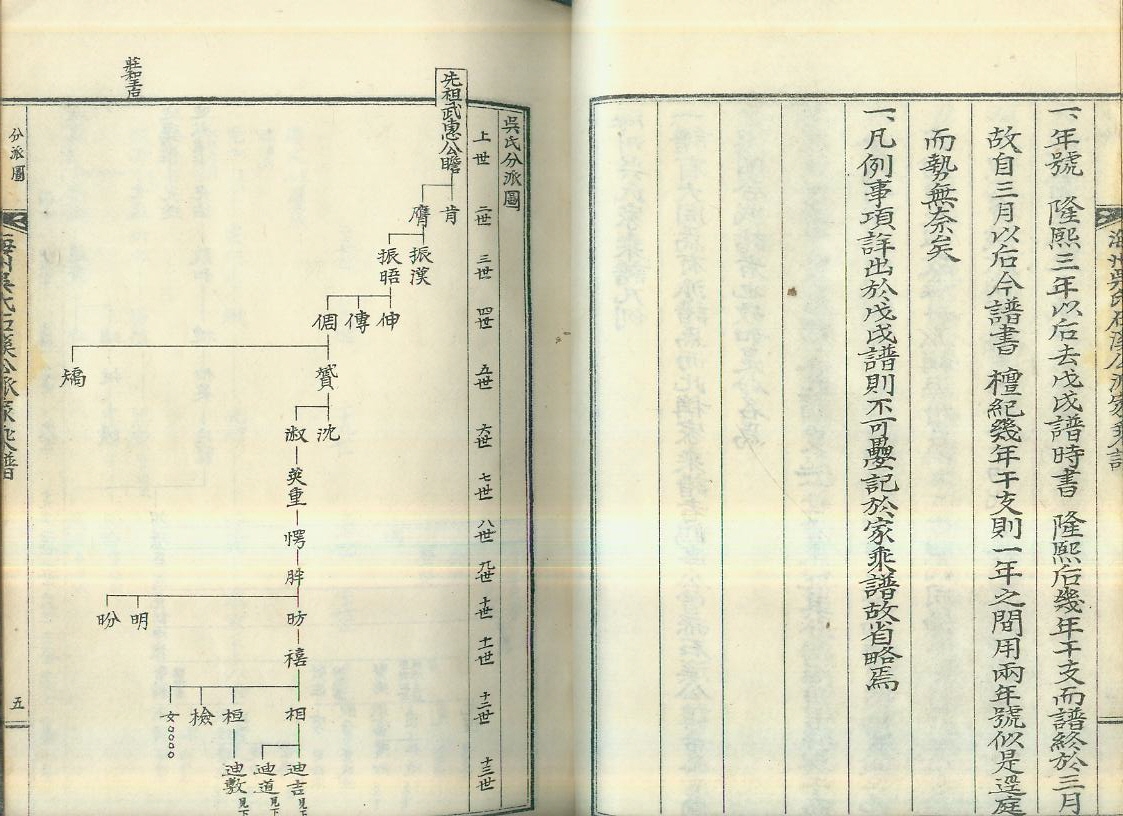 海州吳氏石溪公派家乘譜
一、年號 隆熙三年以后去戊戌譜時書 隆熙后幾年干支而譜終於三月
故自三月以后今譜書 檀紀幾年干支則一年之間用兩年號似是逕庭
而勢無奈矣
一、凡例事項詳出於戊戌譜則不可疊記於家乘譜故省略焉
吳氏分派圖
上世
二世
三世
四世
五世
六世
七世
八世
九世
十世
十一世
十二世
十三世
先祖武惠公瞻
肯
膺
振漢
振晤
伸
傅
倜
贇
矯
沈
淑
英重
愕
胖
昉
明
昐
禧
相
桓
檢
女
迪吉 見下
迪道 見下
迪敷 見下
分派圖
海州吳氏石溪公派家乘譜
五